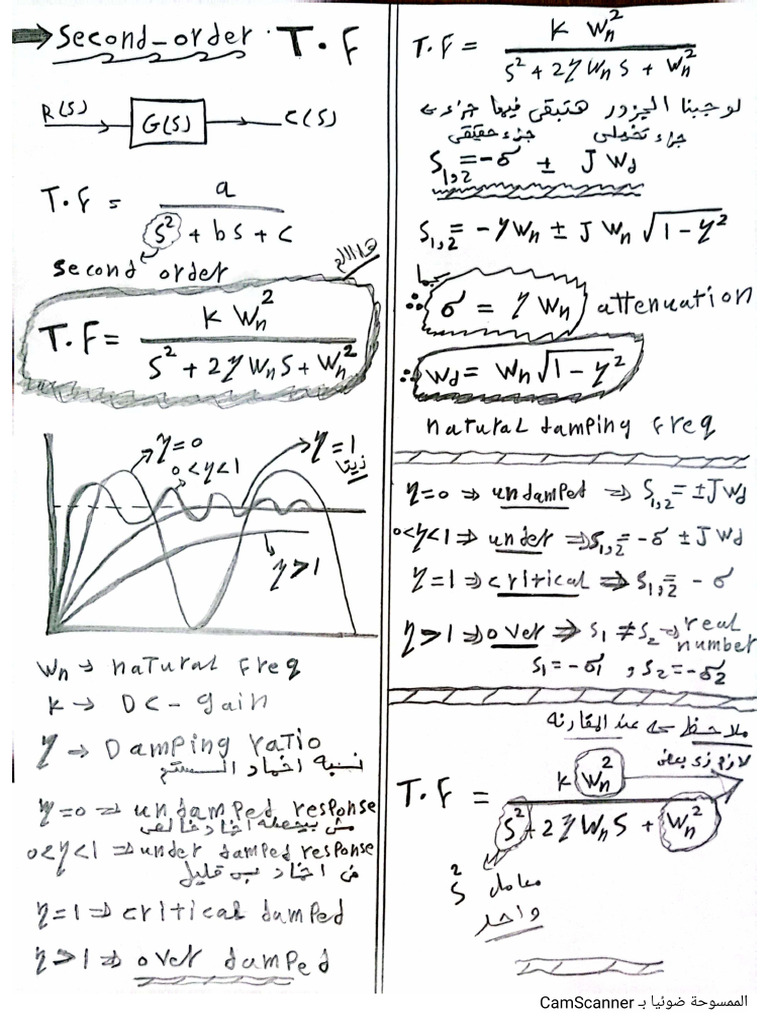 Second-order T.F
R(S)
G(S)
C(S)
T.F = a / (S² + bS + C)
Second order
T.F = K Wn² / (S² + 2ζWnS + Wn²)
ζ=0
0<ζ<1
ζ=1
زيتا
ζ>1
Wn → natural Freq
K → DC-gain
ζ → Damping ratio
نسبة اخماد السستم
ζ=0 ⇒ undamped response
مش بيحصله اخماد خالص
0<ζ<1 ⇒ under damped response
ζ=1 ⇒ critical damped
ζ>1 ⇒ over damped
T.F = K Wn² / (S² + 2ζWnS + Wn²)
لو جبنا الجزور هتبقى فيها جزء
جزء حقيقى جزء تخيلى
S1,2 = -σ ± J Wd
S1,2 = -ζWn ± J Wn √(1-ζ²)
∴ σ = ζ Wn attenuation
∴ Wd = Wn √(1-ζ²)
natural damping freq
ζ=0 ⇒ undamped ⇒ S1,2 = ±JWd
0<ζ<1 ⇒ under ⇒ S1,2 = -σ ± J Wd
ζ=1 ⇒ critical ⇒ S1,2 = -σ
ζ>1 ⇒ over ⇒ S1 ≠ S2 → real number
S1 = -σ1 , S2 = -σ2
ملاحظ ← عند المقارنه
لازم زى بعض
T.F = K Wn² / (S² + 2ζWnS + Wn²)
معامل S²
واحد
الممسوحة ضوئيا بـ CamScanner